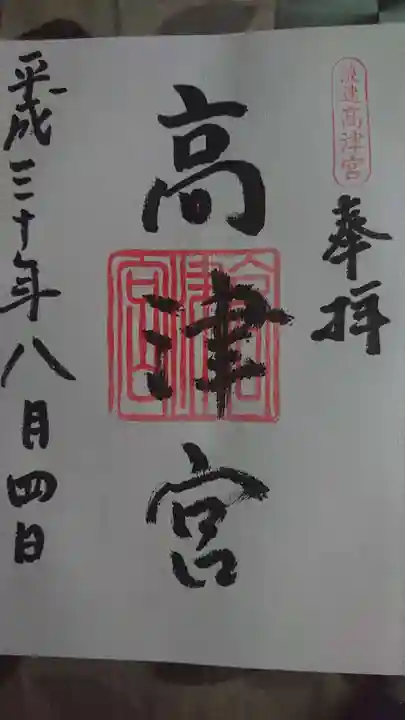 浪速高津宮
奉拝
高津宮
平成三十年八月四日